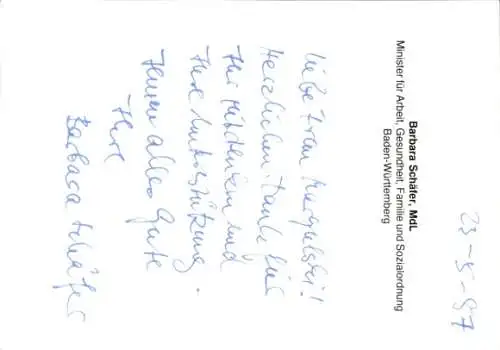 Barbara Schäfer, MdL
Minister für Arbeit, Gesundheit, Familie und Sozialordnung
Baden-Württemberg
Liebe Frau
Herzlichen Dank für
Ihr Mitdenken und
Ihre Unterstützung.
Ihnen alles Gute
Ihre
Barbara Schäfer